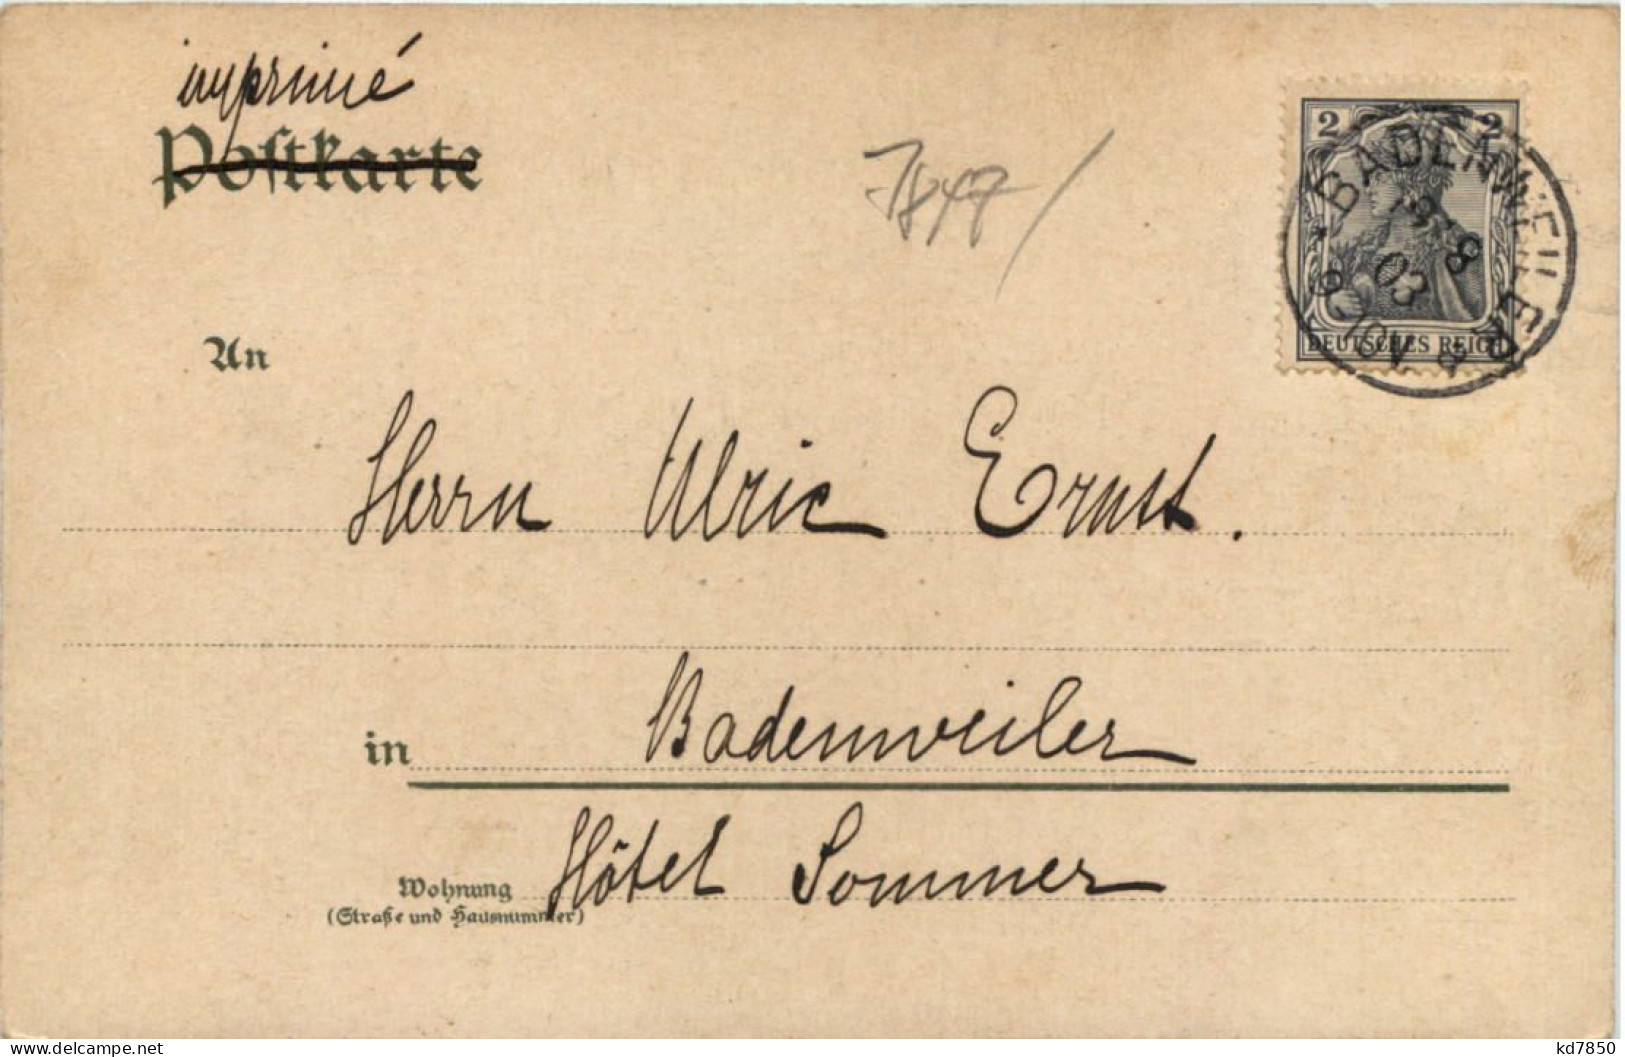 imprimé
Postkarte
7847/
2 2
DEUTSCHES REICH
BADENWEILER
8
03
9-10V.
An
Herrn Ulric Ernst.
in Badenweiler
Hôtel Sommer
Wohnung
(Straße und Hausnummer)
www.delcampe.net
kd7850